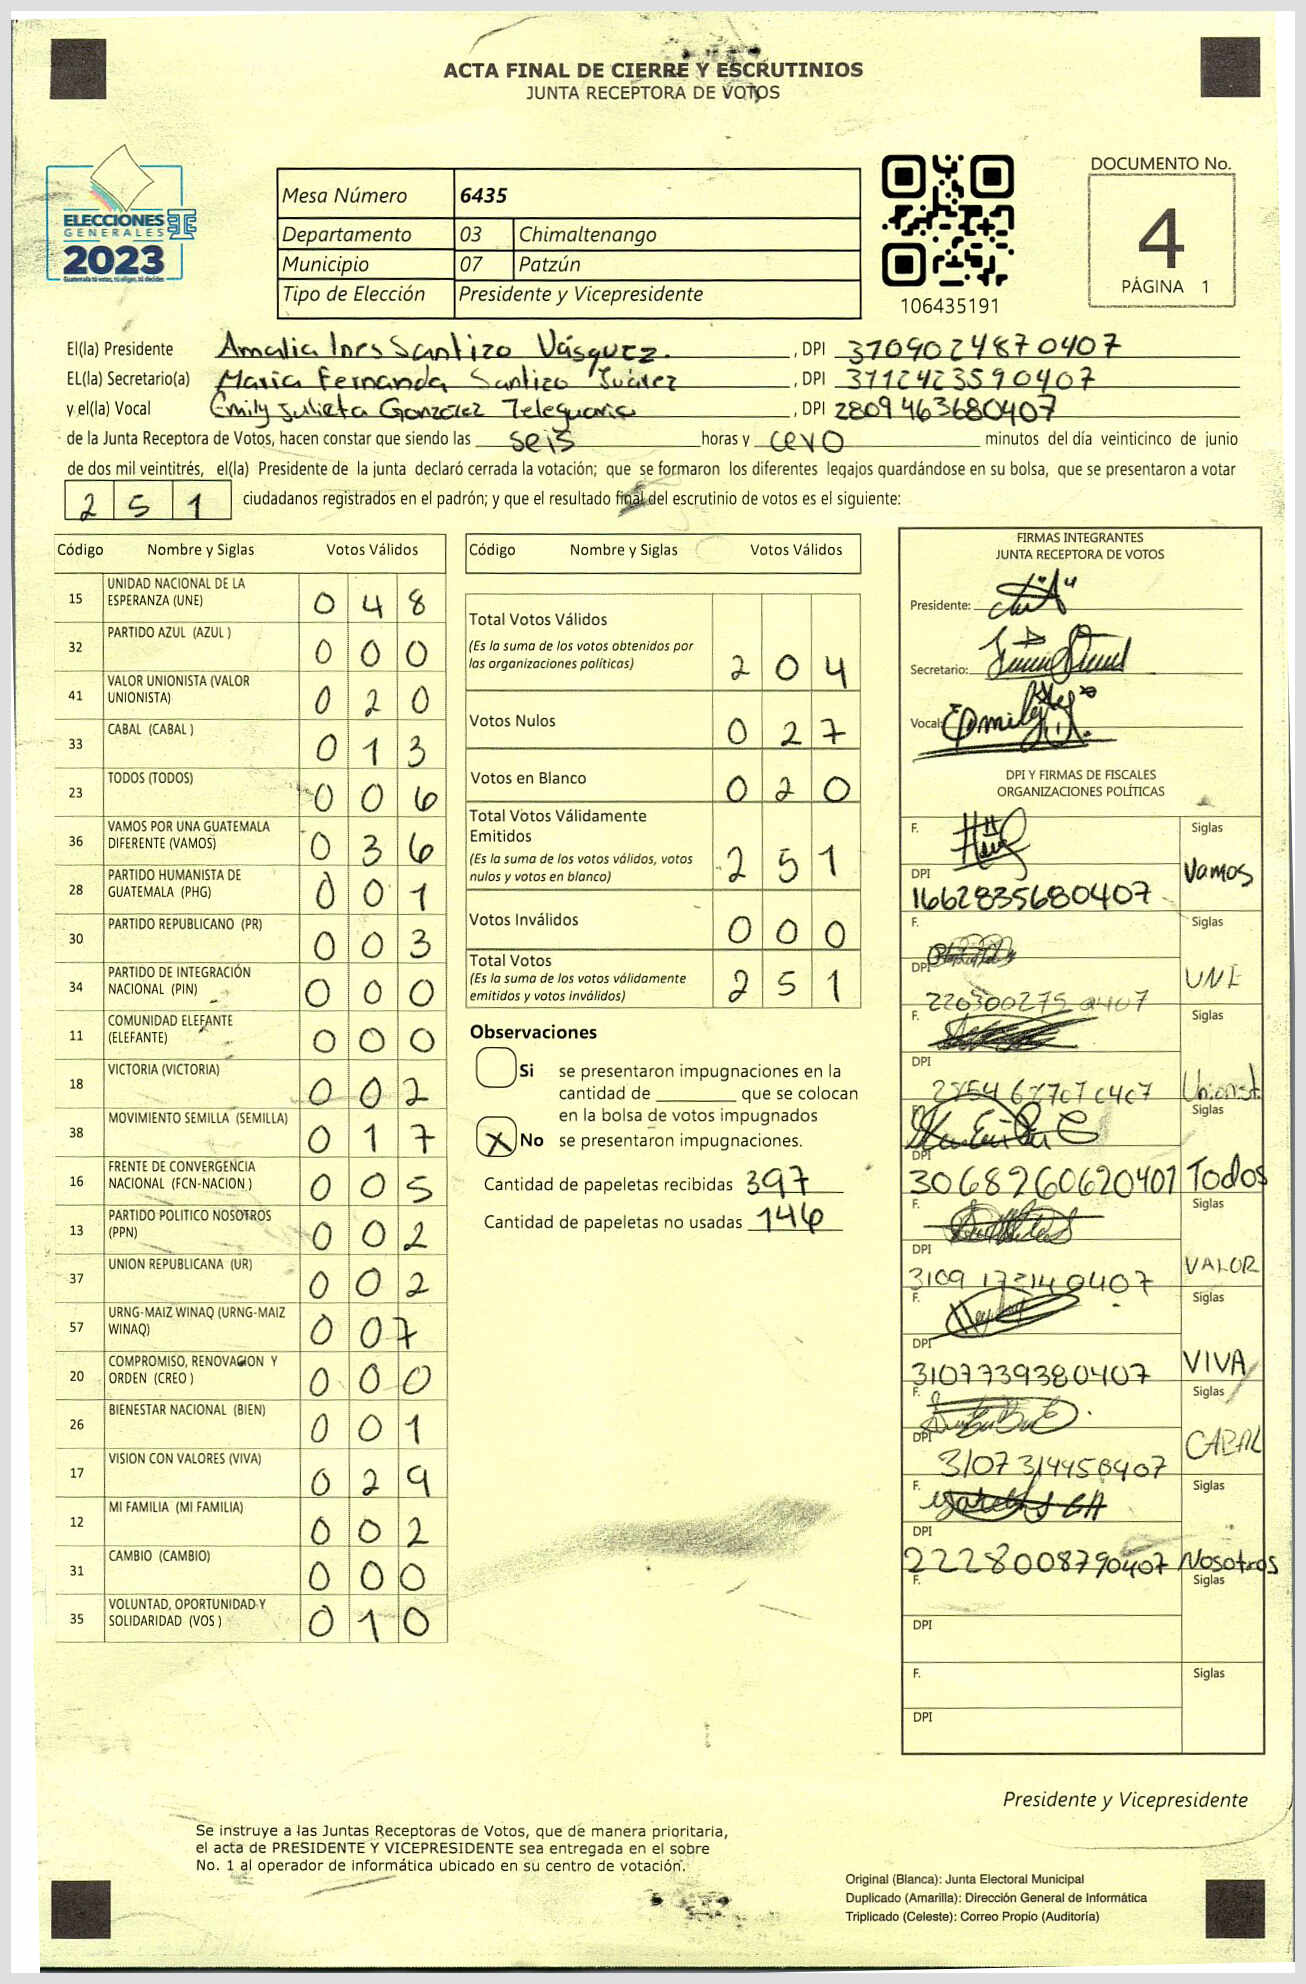 ACTA FINAL DE CIERRE Y ESCRUTINIOS
JUNTA RECEPTORA DE VOTOS
ELECCIONES
GENERALES
2023
Guatemala tú votas, tú eliges, tú decides
Mesa Número 6435
Departamento 03 Chimaltenango
Municipio 07 Patzún
Tipo de Elección Presidente y Vicepresidente
106435191
DOCUMENTO No.
4
PÁGINA 1
El(la) Presidente Amalia Ines Santizo Vásquez. , DPI 3709024870407
EL(la) Secretario(a) Maria Fernanda Santizo Juárez , DPI 3712423590407
y el(la) Vocal Emily Julieta González Teleguario , DPI 2809463680407
de la Junta Receptora de Votos, hacen constar que siendo las seis horas y cero minutos del día veinticinco de junio
de dos mil veintitrés, el(la) Presidente de la junta declaró cerrada la votación; que se formaron los diferentes legajos guardándose en su bolsa, que se presentaron a votar
251 ciudadanos registrados en el padrón; y que el resultado final del escrutinio de votos es el siguiente:
Código Nombre y Siglas Votos Válidos
15 UNIDAD NACIONAL DE LA ESPERANZA (UNE) 048
32 PARTIDO AZUL (AZUL ) 000
41 VALOR UNIONISTA (VALOR UNIONISTA) 020
33 CABAL (CABAL ) 013
23 TODOS (TODOS) 006
36 VAMOS POR UNA GUATEMALA DIFERENTE (VAMOS) 036
28 PARTIDO HUMANISTA DE GUATEMALA (PHG) 001
30 PARTIDO REPUBLICANO (PR) 003
34 PARTIDO DE INTEGRACIÓN NACIONAL (PIN) 000
11 COMUNIDAD ELEFANTE (ELEFANTE) 000
18 VICTORIA (VICTORIA) 002
38 MOVIMIENTO SEMILLA (SEMILLA) 017
16 FRENTE DE CONVERGENCIA NACIONAL (FCN-NACION ) 005
13 PARTIDO POLITICO NOSOTROS (PPN) 002
37 UNION REPUBLICANA (UR) 002
57 URNG-MAIZ WINAQ (URNG-MAIZ WINAQ) 007
20 COMPROMISO, RENOVACION Y ORDEN (CREO ) 000
26 BIENESTAR NACIONAL (BIEN) 001
17 VISION CON VALORES (VIVA) 029
12 MI FAMILIA (MI FAMILIA) 002
31 CAMBIO (CAMBIO) 000
35 VOLUNTAD, OPORTUNIDAD Y SOLIDARIDAD (VOS ) 010
Código Nombre y Siglas Votos Válidos
Total Votos Válidos 204
(Es la suma de los votos obtenidos por
las organizaciones políticas)
Votos Nulos 027
Votos en Blanco 020
Total Votos Válidamente
Emitidos 251
(Es la suma de los votos válidos, votos
nulos y votos en blanco)
Votos Inválidos 000
Total Votos 251
(Es la suma de los votos válidamente
emitidos y votos inválidos)
Observaciones
Si se presentaron impugnaciones en la
cantidad de ________ que se colocan
en la bolsa de votos impugnados
X No se presentaron impugnaciones.
Cantidad de papeletas recibidas 397
Cantidad de papeletas no usadas 146
FIRMAS INTEGRANTES
JUNTA RECEPTORA DE VOTOS
Presidente:
Secretario:
Vocal: Emily
DPI Y FIRMAS DE FISCALES
ORGANIZACIONES POLÍTICAS
F. Siglas
DPI 1662835680407 Vamos
F. Siglas
DPI 2203002750407 UNE
F. Siglas
DPI Unionist.
F. Siglas
DPI 3068260620407 Todos
F. Siglas
DPI VALOR
F. Siglas
DPI 3107739380407 VIVA
F. Siglas
DPI 3107314450407 CABAL
F. Siglas
DPI 2228008790407 Nosotros
F. Siglas
DPI
F. Siglas
DPI
Presidente y Vicepresidente
Se instruye a las Juntas Receptoras de Votos, que de manera prioritaria,
el acta de PRESIDENTE Y VICEPRESIDENTE sea entregada en el sobre
No. 1 al operador de informática ubicado en su centro de votación.
Original (Blanca): Junta Electoral Municipal
Duplicado (Amarilla): Dirección General de Informática
Triplicado (Celeste): Correo Propio (Auditoría)